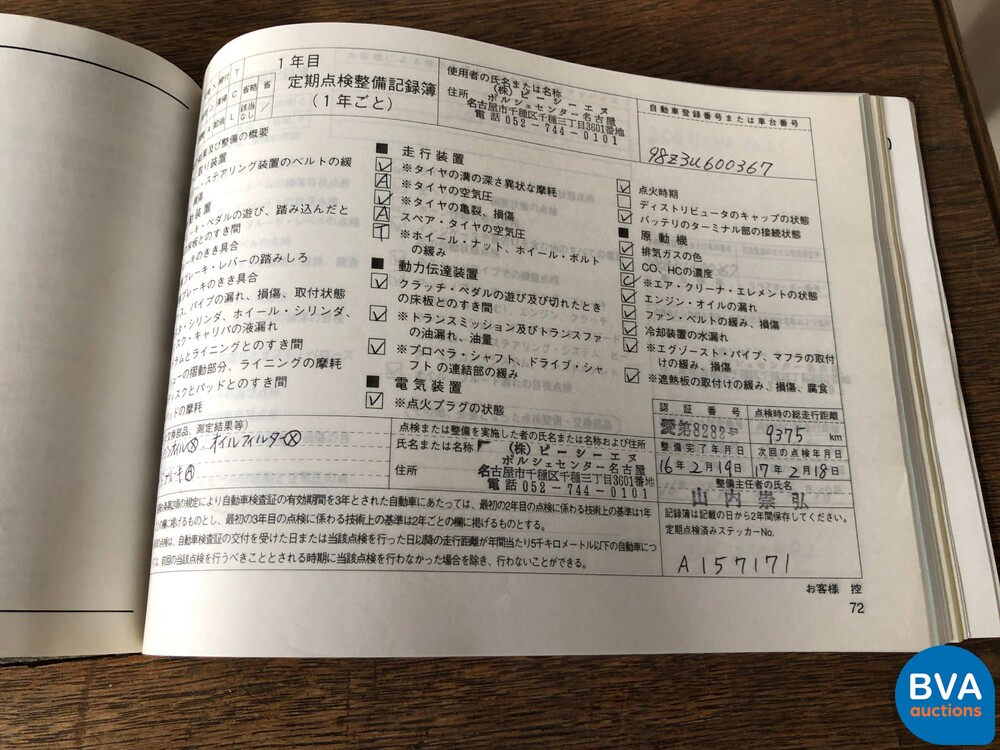 1年目
定期点検整備記録簿
(1年ごと)
使用者の氏名または名称
(株)ピーシーエヌ
住所
ポルシェセンター名古屋
名古屋市千種区千種三丁目3601番地
電話 052-744-0101
自動車登録番号または車台番号
98Z3U600367
T
C 省略 省
L 該当なし /
及び整備の概要
り装置
・ステアリング装置のベルトの緩
損傷
装置
キ・ペダルの遊び、踏み込んだと
床板とのすき間
ーキのきき具合
ブレーキ・レバーの踏みしろ
ブレーキのきき具合
ス、パイプの漏れ、損傷、取付状態
タ・シリンダ、ホイール・シリンダ、
スク・キャリパの液漏れ
ラムとライニングとのすき間
ューの摺動部分、ライニングの摩耗
ィスクとパッドとのすき間
ッドの摩耗
■ 走行装置
✓ ※タイヤの溝の深さ異状な摩耗
A ※タイヤの空気圧
✓ ※タイヤの亀裂、損傷
A スペア・タイヤの空気圧
T ※ホイール・ナット、ホイール・ボルト
の緩み
■ 動力伝達装置
✓ クラッチ・ペダルの遊び及び切れたとき
の床板とのすき間
✓ ※トランスミッション及びトランスファ
の油漏れ、油量
✓ ※プロペラ・シャフト、ドライブ・シャ
フトの連結部の緩み
■ 電気装置
✓ ※点火プラグの状態
✓ 点火時期
ディストリビュータのキャップの状態
✓ バッテリのターミナル部の接続状態
■ 原動機
✓ 排気ガスの色
✓ CO、HCの濃度
C ※エア・クリーナ・エレメントの状態
✓ エンジン・オイルの漏れ
✓ ファン・ベルトの緩み、損傷
✓ 冷却装置の水漏れ
✓ ※エグゾースト・パイプ、マフラの取付
けの緩み、損傷
✓ ※遮熱板の取付けの緩み、損傷、腐食
部品、測定結果等)
オイルⓍ、オイルフィルターⓍ
ブレーキⒶ
点検または整備を実施した者の氏名または名称および住所
氏名または名称
(株)ピーシーエヌ
ポルシェセンター名古屋
住所
名古屋市千種区千種三丁目3601番地
電話 052-744-0101
認証番号 点検時の総走行距離
愛第8282号 9375 km
整備完了年月日 次回の点検年月日
16年2月19日 17年2月18日
整備主任者の氏名
山内崇弘
記録簿は記載の日から2年間保存してください。
定期点検済みステッカーNo.
A157171
項の規定により自動車検査証の有効期間を3年とされた自動車にあたっては、最初の2年目の点検に係わる技術上の基準は1年
の欄に掲げるものとし、最初の3年目の点検に係わる技術上の基準は2年ごとの欄に掲げるものとする。
の点検は、自動車検査証の交付を受けた日または当該点検を行った日以降の走行距離が年間当たり5千キロメートル以下の自動車につ
は、前回の当該点検を行うべきこととされる時期に当該点検を行わなかった場合を除き、行わないことができる。
お客様 控
72
BVA
auctions